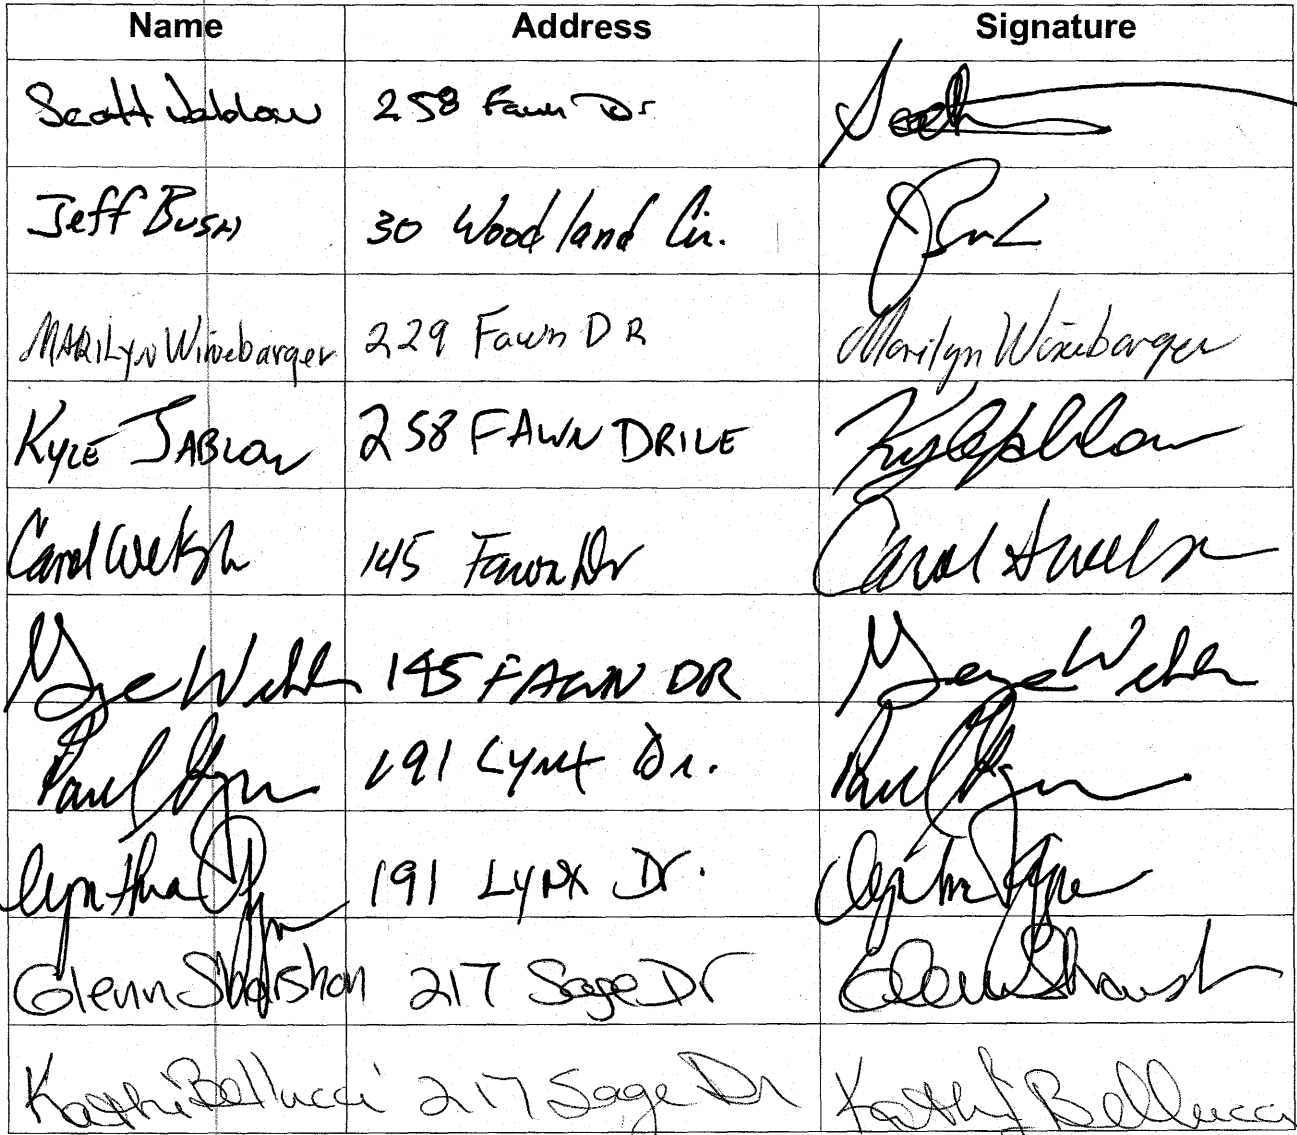 Name Address Signature
Scott Jablow 258 Fawn Dr Scott
Jeff Bush 30 Woodland Cir.
MARiLyN Winebarger 229 Fawn DR Marilyn Winebarger
KYLE JABLOW 258 FAWN DRIVE Kyle Jablow
Carol Welsh 145 Fawn Dr Carol
145 FAWN DR George
Paul 191 Lynx Dr. Paul
Cynthia 191 Lynx Dr.
Glenn 217 Sage Dr Glenn
Kathi Bellucci 217 Sage Dr Kathi Bellucci